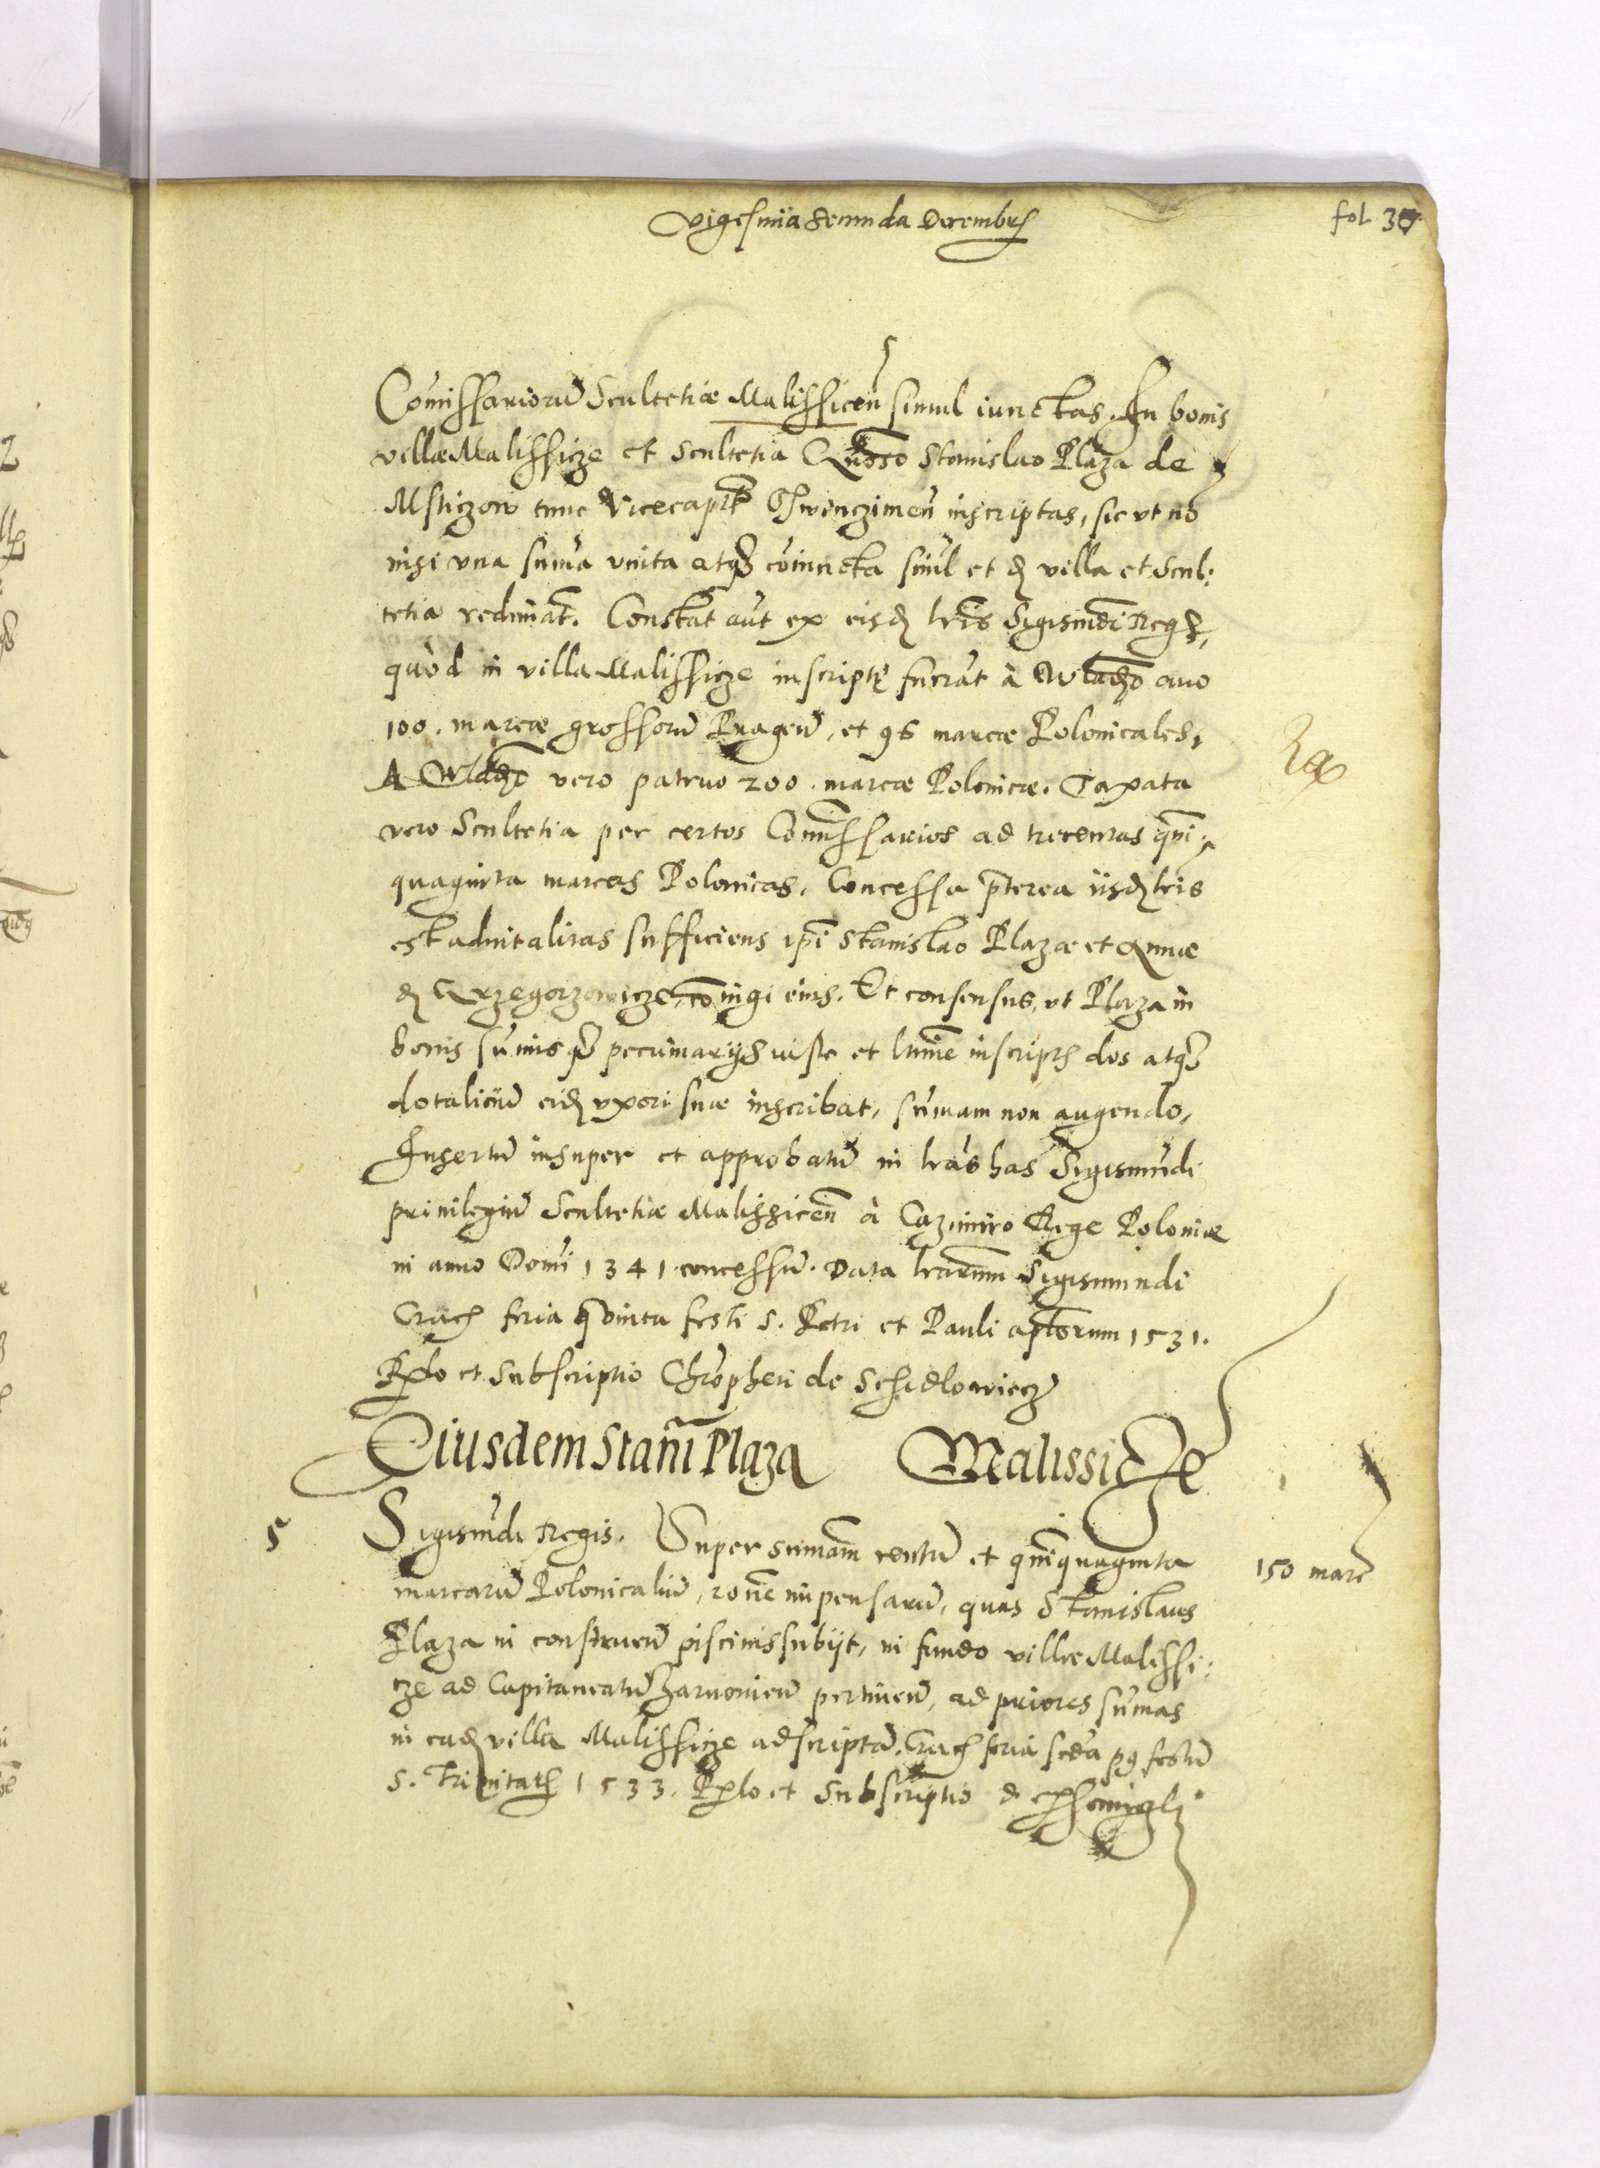 Vigesima Secunda Decembris
fol 37
Com̃issariorũ Scultetiæ Malissicen̄ simul iunctas. In bonis
villæ Malissicze et Scultetia Stanislao Plaza de
Msticzow tunc Vicecaptõ Oswenczimen̄ inscriptas, sic vt nõ
nisi vna sum̃a vnita atq3 cõiuncta simul et villa et Scul:
tetia redimãt. Constat aũt ex eisd lr̃is Sigismũdi Regis,
quòd in villa Malissicze inscriptę fuerãt à Wladõ auo
100. marcæ grossorũ Pragen̄, et 96 marcæ Polonicales,
A Wladõ vero patruo 200. marcæ Polonicæ. Taxata
vero Scultetia per certos Com̃issarios ad trecentas quĩ:
quaginta marcas Polonicas. Concessa p̃terea iisd lr̃is
est aduitalitas sufficiens ip̃i Stanislao Plazæ et Annæ
d Grzegorzowicze, cõiugi eius. Et consensus, vt Plaza in
bonis sum̃isq3 pecuniarijs iuste et lt̃ime inscriptis dos atq3
dotalitiũ eid vxori suæ inscribat, sum̃am non augendo,
Insertũ insuper et approbatũ in lr̃as has Sigismũdi
priuilegiũ Scultetiæ Malissicen̄ à Cazimiro Rege Poloniæ
in anno Domĩ 1341 concessũ. Data lr̃arum Sigismundi
Crac feria quinta festi S. Petri et Pauli aptõrum 1531.
Rẽlo et Subscriptio Chrõpheri de Schidlowiecz
Eiusdem Stanĩ Plaza Malissicze
5 Sigismũdi Regis. Super sum̃am centũ et quĩquaginta
150 marc̃
marcarũ Polonicaliũ, rõne impensarũ, quas Stanislaus
Plaza in construen̄ piscinis subijt, in fundo villæ Malissi:
cze ad Capitaneatũ Zarnouien̄ pertinen̄, ad priores sum̃as
in ead villa Malissicze adscriptã. Crac feria scďa pq festũ
S. Trinitatis 1533. Rẽlo et Subscriptio